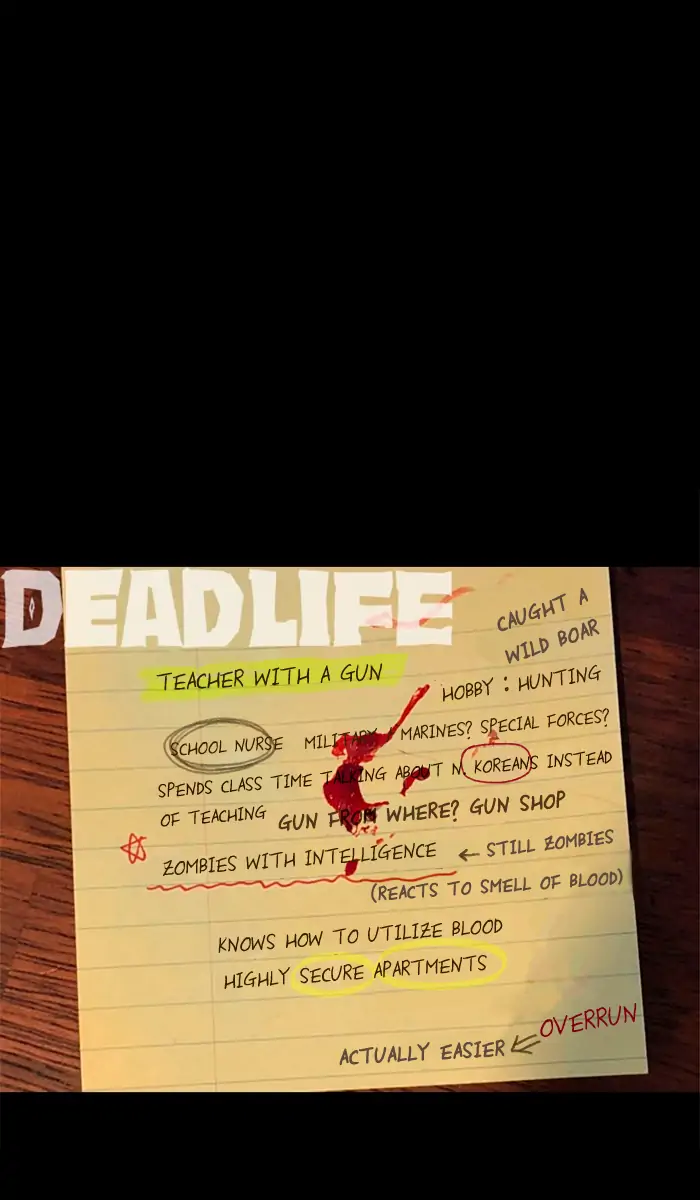 DEADLIFE
CAUGHT A
WILD BOAR
TEACHER WITH A GUN
HOBBY : HUNTING
SCHOOL NURSE MILITARY / MARINES? SPECIAL FORCES?
SPENDS CLASS TIME TALKING ABOUT N. KOREANS INSTEAD
OF TEACHING GUN FROM WHERE? GUN SHOP
ZOMBIES WITH INTELLIGENCE ← STILL ZOMBIES
(REACTS TO SMELL OF BLOOD)
KNOWS HOW TO UTILIZE BLOOD
HIGHLY SECURE APARTMENTS
OVERRUN
ACTUALLY EASIER ←